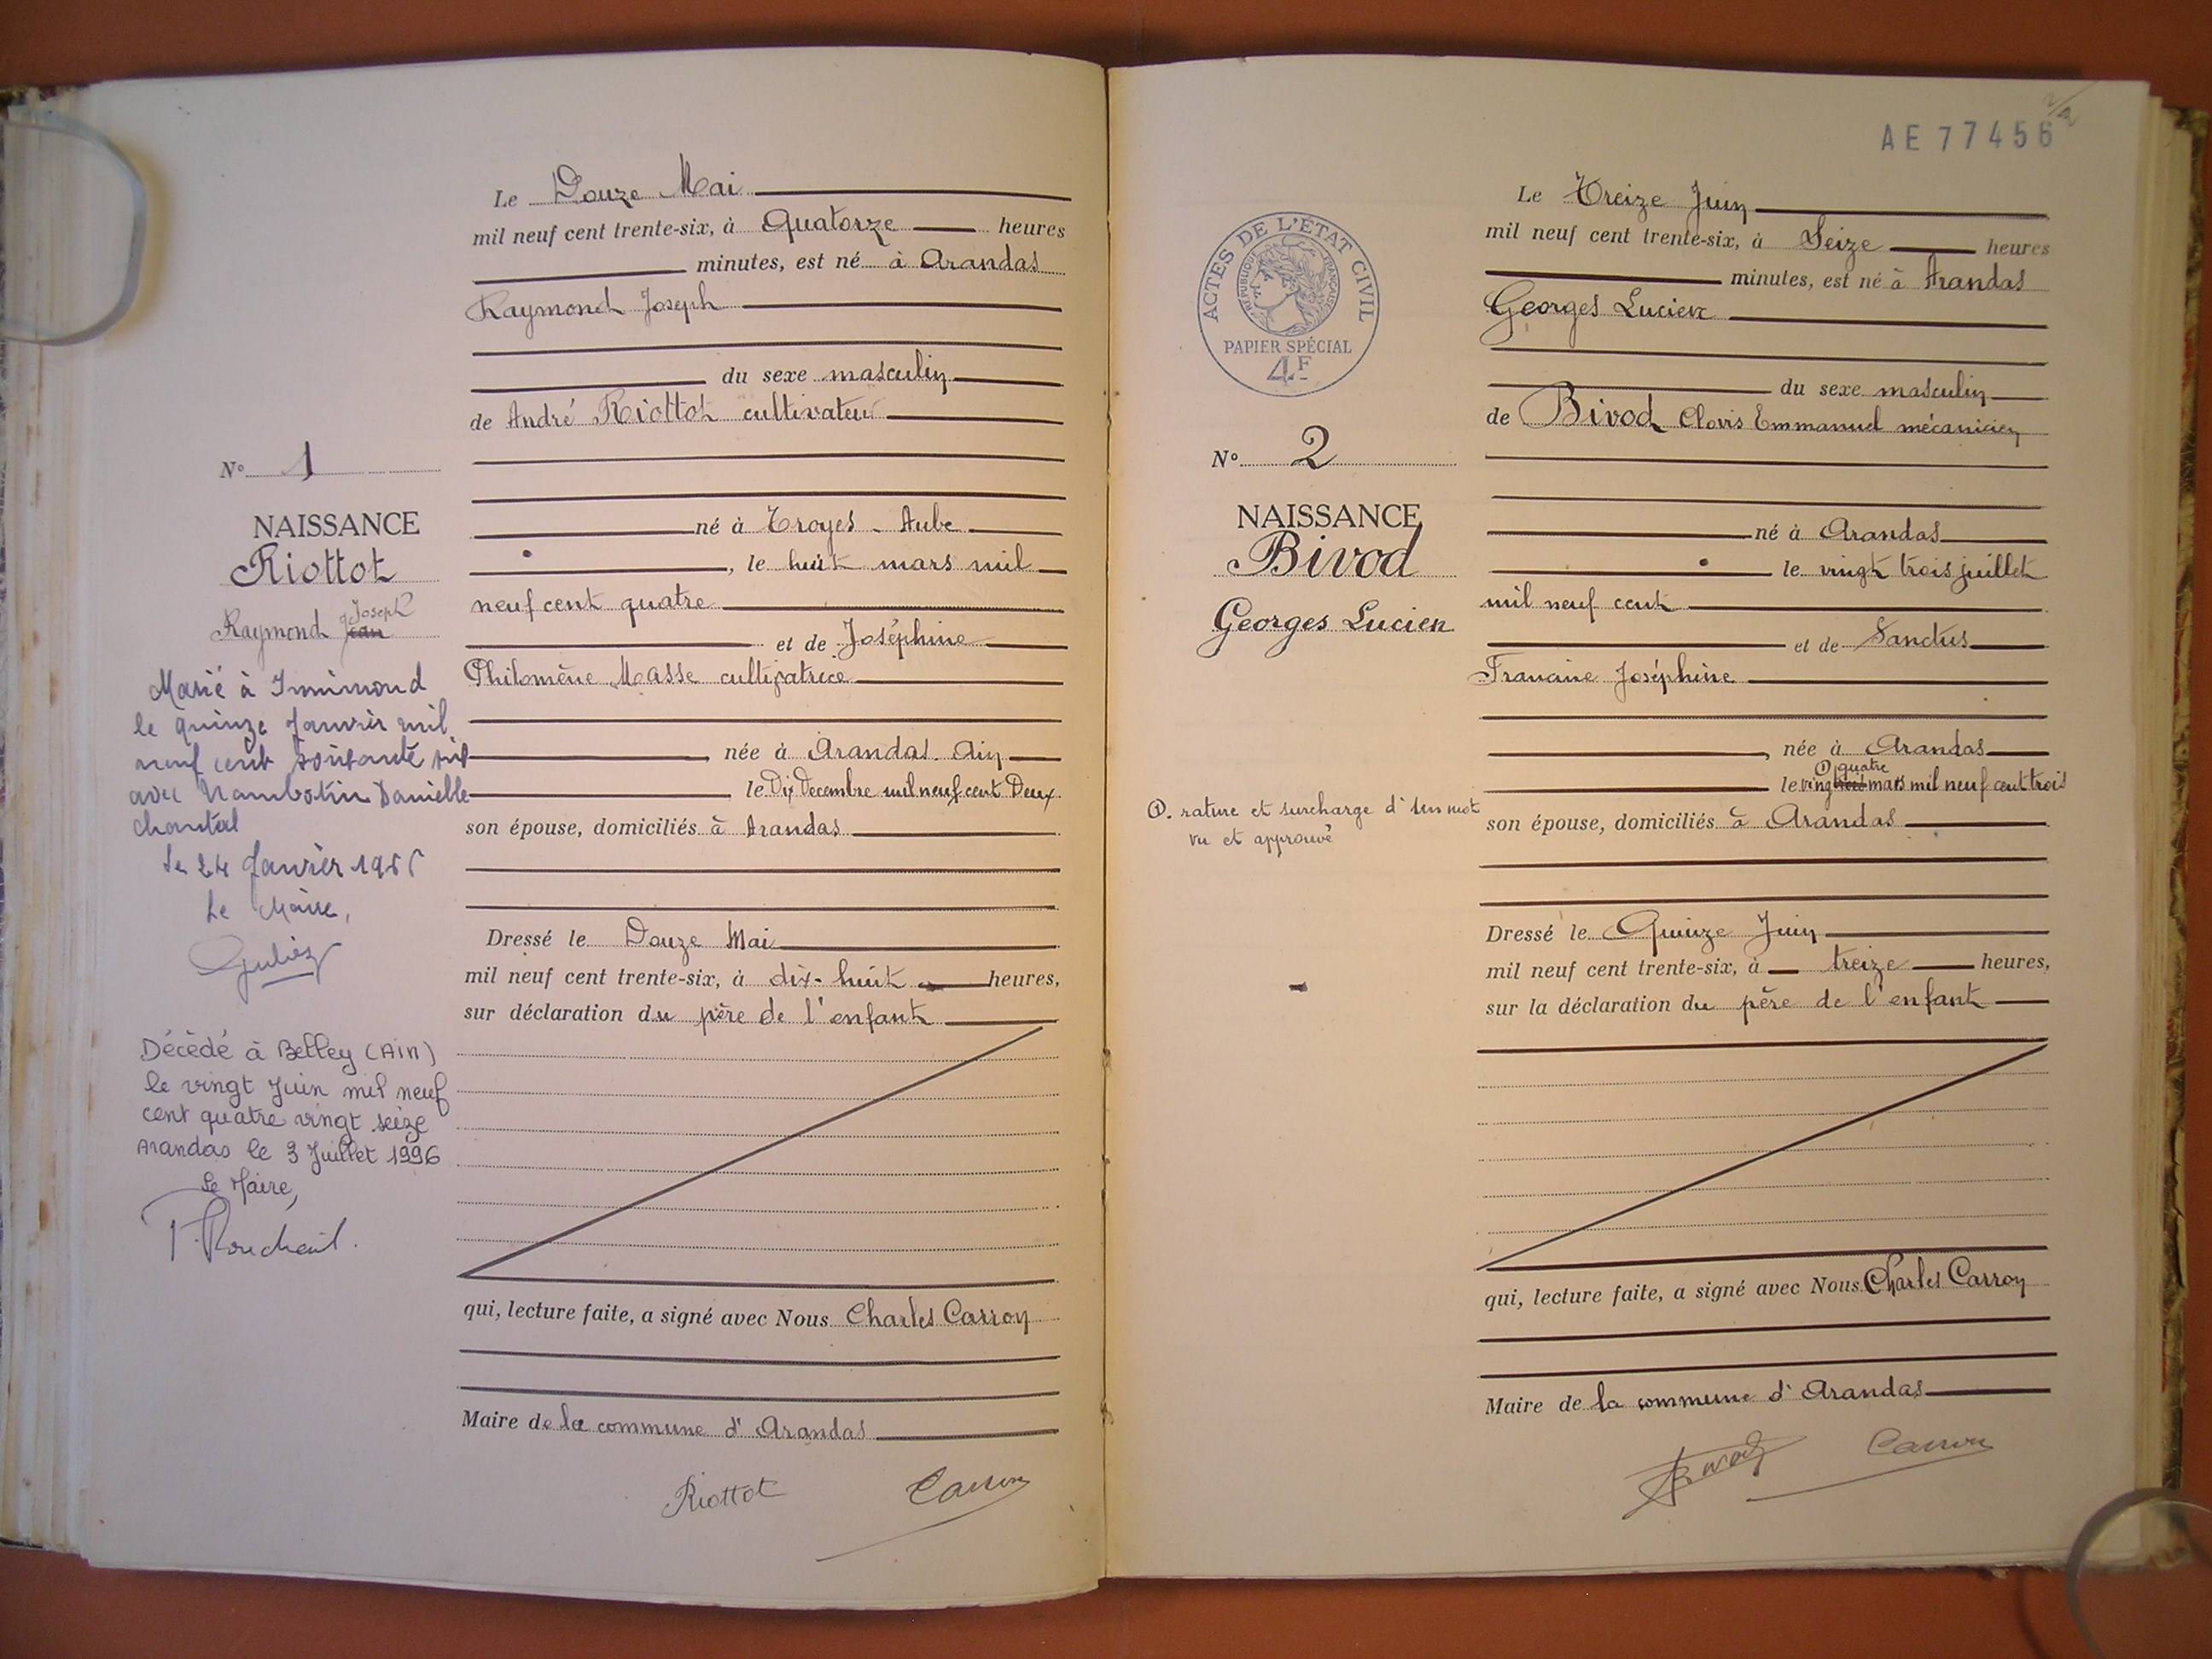 Le Douze Mai
mil neuf cent trente-six, à Quatorze heures
minutes, est né à Arandas
Raymond Joseph
du sexe masculin
de André Riottot cultivateur
né à Troyes - Aube
, le huit mars mil
neuf cent quatre
et de Joséphine
Philomène Masse cultivatrice
née à Arandas. Ain
le Dix Decembre mil neuf cent Deux
son épouse, domiciliés à Arandas
Dressé le Douze Mai
mil neuf cent trente-six, à dix-huit heures,
sur déclaration du père de l'enfant
qui, lecture faite, a signé avec Nous Charles Carron
Maire de la commune d'Arandas
Riottot Carron
N° 1
NAISSANCE
Riottot
Joseph
Raymond Jean
Marié à Innimond
le quinze Janvier mil
neuf cent soixante six
avec Danielle
Chantal
le 24 Janvier 1966
Le Maire,
Décédé à Belley (Ain)
le vingt Juin mil neuf
cent quatre vingt seize
Arandas le 3 Juillet 1996
Le Maire,
AE 77456
Le Treize Juin
mil neuf cent trente-six, à Seize heures
minutes, est né à Arandas
Georges Lucien
du sexe masculin
de Bivod Clovis Emmanuel mécanicien
né à Arandas
le vingt trois juillet
mil neuf cent
et de Sanctus
Francine Joséphine
née à Arandas
① quatre
le vingt mars mil neuf cent trois
son épouse, domiciliés à Arandas
Dressé le Quinze Juin
mil neuf cent trente-six, à treize heures,
sur la déclaration du père de l'enfant
qui, lecture faite, a signé avec Nous Charles Carron
Maire de la commune d'Arandas
Bivod Carron
ACTES DE L'ÉTAT CIVIL
RÉPUBLIQUE FRANÇAISE
PAPIER SPÉCIAL
4F
N° 2
NAISSANCE
Bivod
Georges Lucien
①. rature et surcharge d'un mot
vu et approuvé